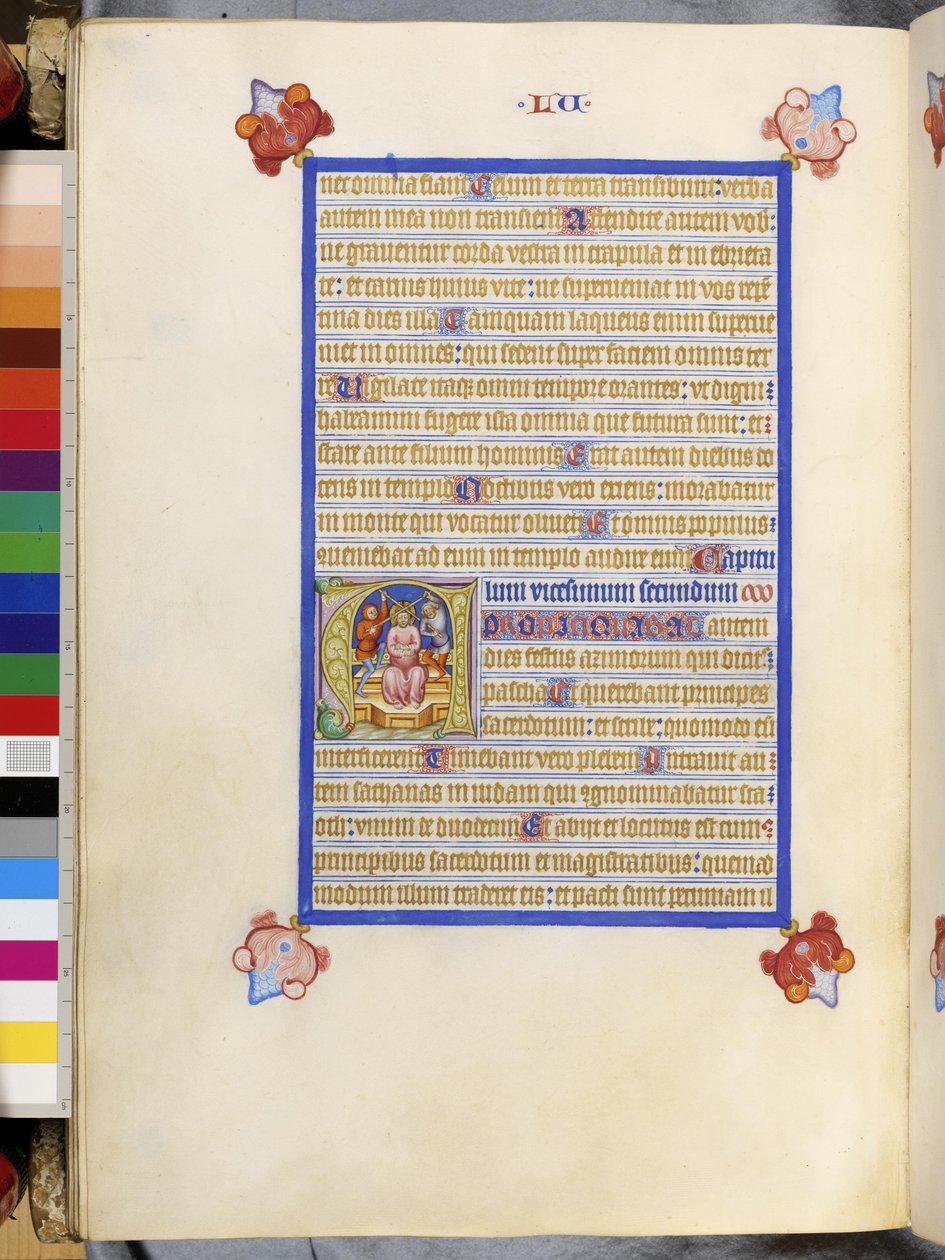 · LU ·
nec omnia fiant Celum et terra transibunt: verba
autem mea non transient Attendite autem vob:
ne grauentur corda vestra in crapula et in ebrieta
te: et curis huius vite: ne superueniat in vos repē
tina dies illa Tamquam laqueus enim superue
niet in omnes: qui sedent super faciem omnis ter
re Uigilate itaqꝫ omni tempore orantes: vt digni
habeamini fugere ista omnia que futura sunt: et
stare ante filium hominis Erat autem diebus do
cens in templo Noctibus vero exiens: morabatur
in monte qui vocatur oliueti Et omnis populus:
queniebat ad eum in templo audire eum Capitu
lum vicesimum secundum
APROPINQUABAT autem
dies festus azimorum qui dicit᷑:
pascha Et querebant principes
sacerdotum: et scribe: quomodo eū
interficerent Timebant vero plebem Intrauit au
tem sathanas in iudam qui ꝯgnominabatur sca:
rioth: vnum de duodecim Et abijt et locutus est cum
principibus sacerdotum et magistratibus: quemad
modum illum traderet eis: et pacti sunt pecuniam il